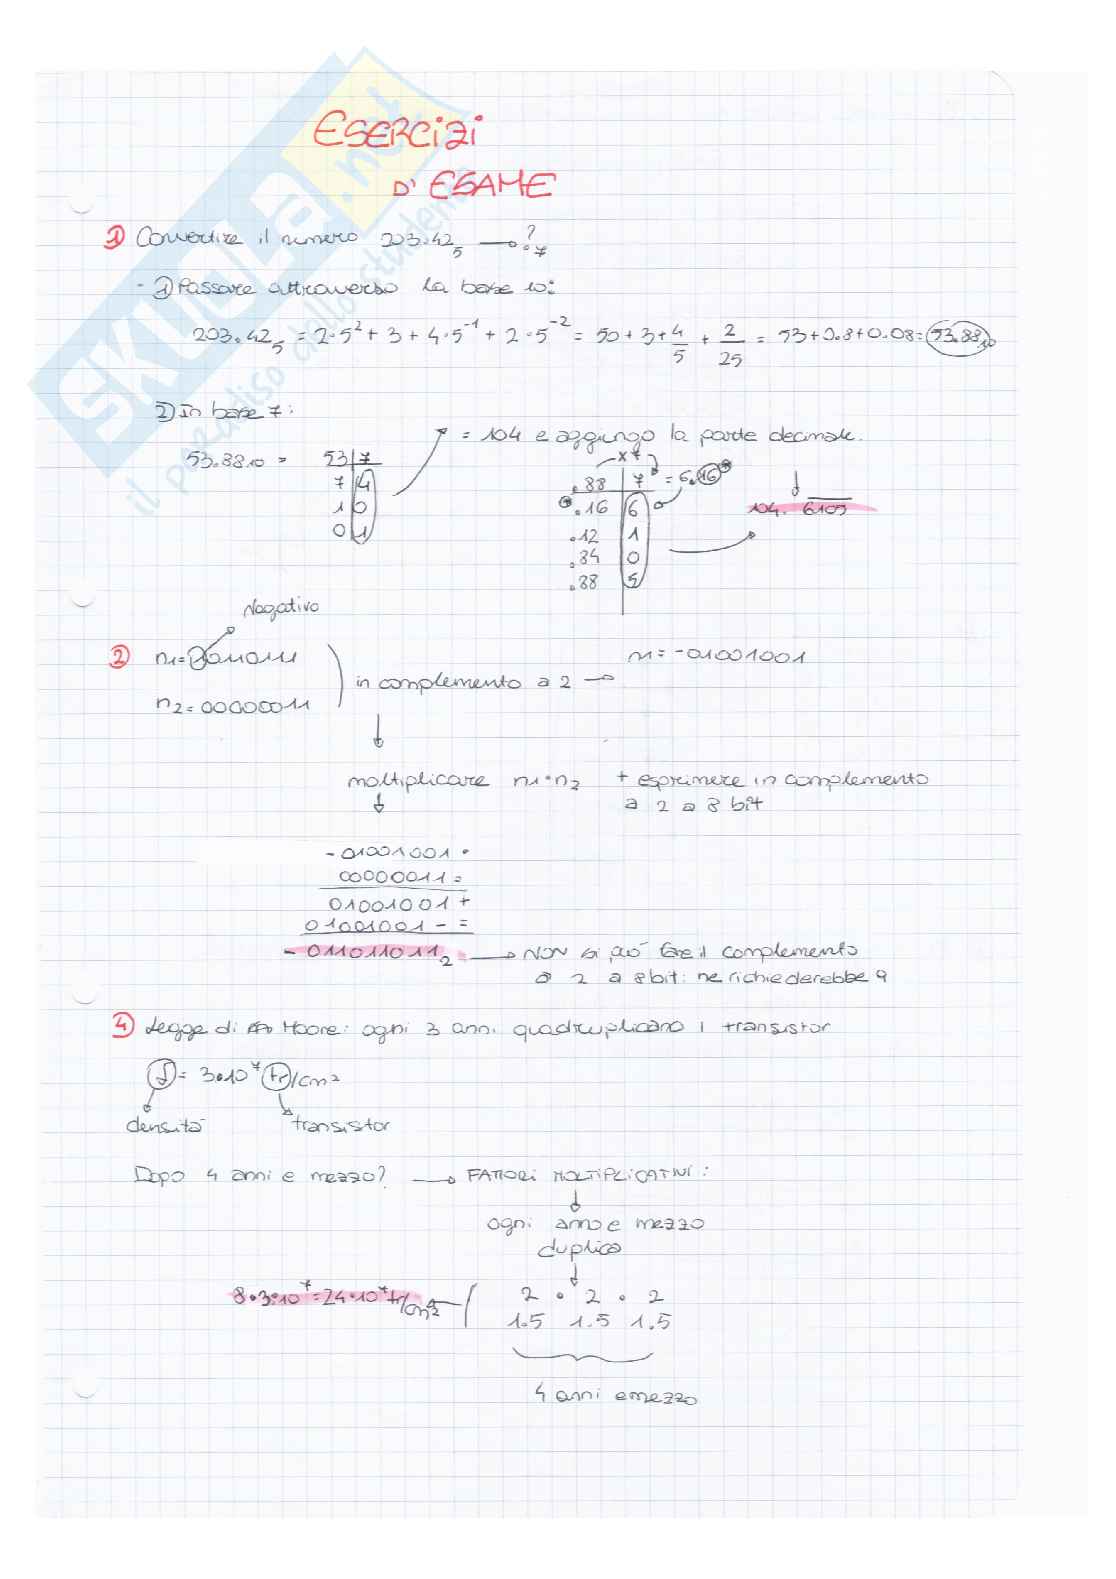 ESERCIZI
D' ESAME
1 Convertire il numero 203.42₅ → ?.₇
- 1) Passare attraverso la base 10:
203.42₅ = 2·5² + 3 + 4·5⁻¹ + 2·5⁻² = 50 + 3 + 4/5 + 2/25 = 53 + 0.8 + 0.08 = 53.88₁₀
2) In base 7:
= 104 e aggiungo la parte decimale.
53.88₁₀ =
53 | 7
7 | 4
1 | 0
0 | 1
x 7
.88 | 7 = 6.16
.16 | 6
.12 | 1
.84 | 0
.88 | 5
104. 6105
Negativo
2 n1 = 10110111
n2 = 00000011
in complemento a 2 →
n1 = -01001001
moltiplicare n1·n2 + esprimere in complemento
a 2 a 8 bit
- 01001001 ·
00000011 =
01001001 +
01001001 - =
- 011011011₂ → NON si può fare il complemento
a 2 a 8 bit: ne richiederebbe 9
4 Legge di Moore: ogni 3 anni quadruplicano i transistor
d = 3·10⁷ tr/cm²
densità
transistor
Dopo 4 anni e mezzo? → FATTORI MOLTIPLICATIVI:
ogni anno e mezzo
duplica
8·3·10⁷ = 24·10⁷ tr/cm²
2 · 2 · 2
1.5 1.5 1.5
4 anni e mezzo
SKUOLA.net
il paradiso dello studente